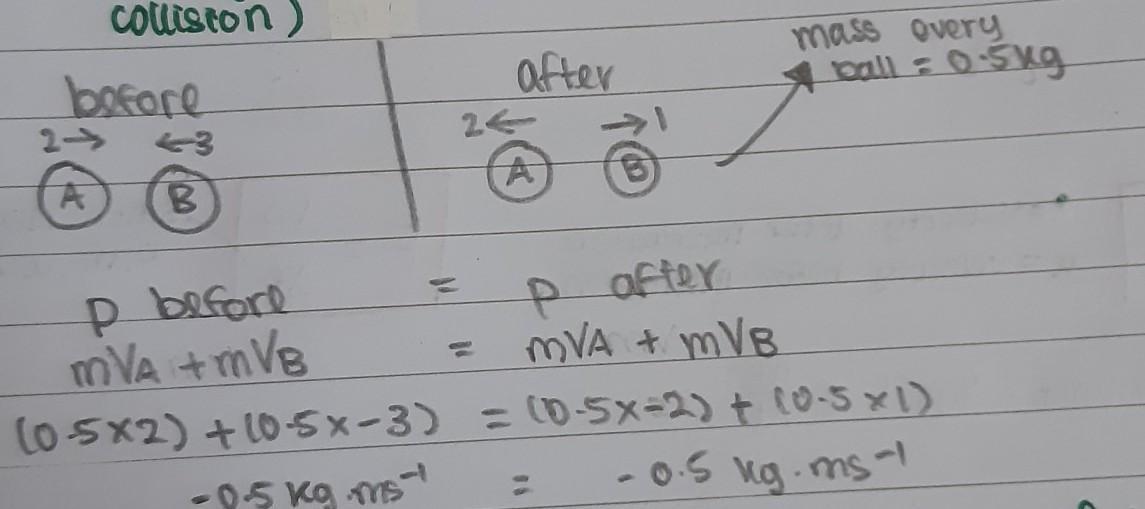 collision)
before
after
mass every
ball = 0.5kg
2→ ←3
2← →1
A B
A B
p before = p after
mVA + mVB = mVA + mVB
(0.5×2) + (0.5×-3) = (0.5×-2) + (0.5×1)
-0.5 kg.ms⁻¹ = -0.5 kg.ms⁻¹